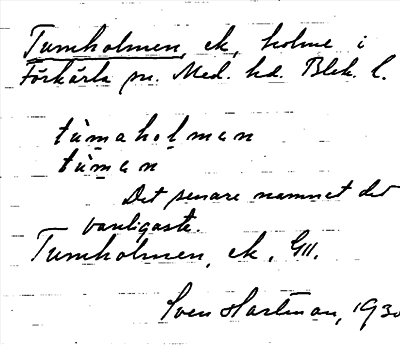 Tumholmen, ek, holme i
Förkärla sn. Med. hd. Blek. l.
tùmaholman
tùman
Det senare namnet det
vanligaste.
Tumholmen, ek, GII.
Sven Hartman, 1930